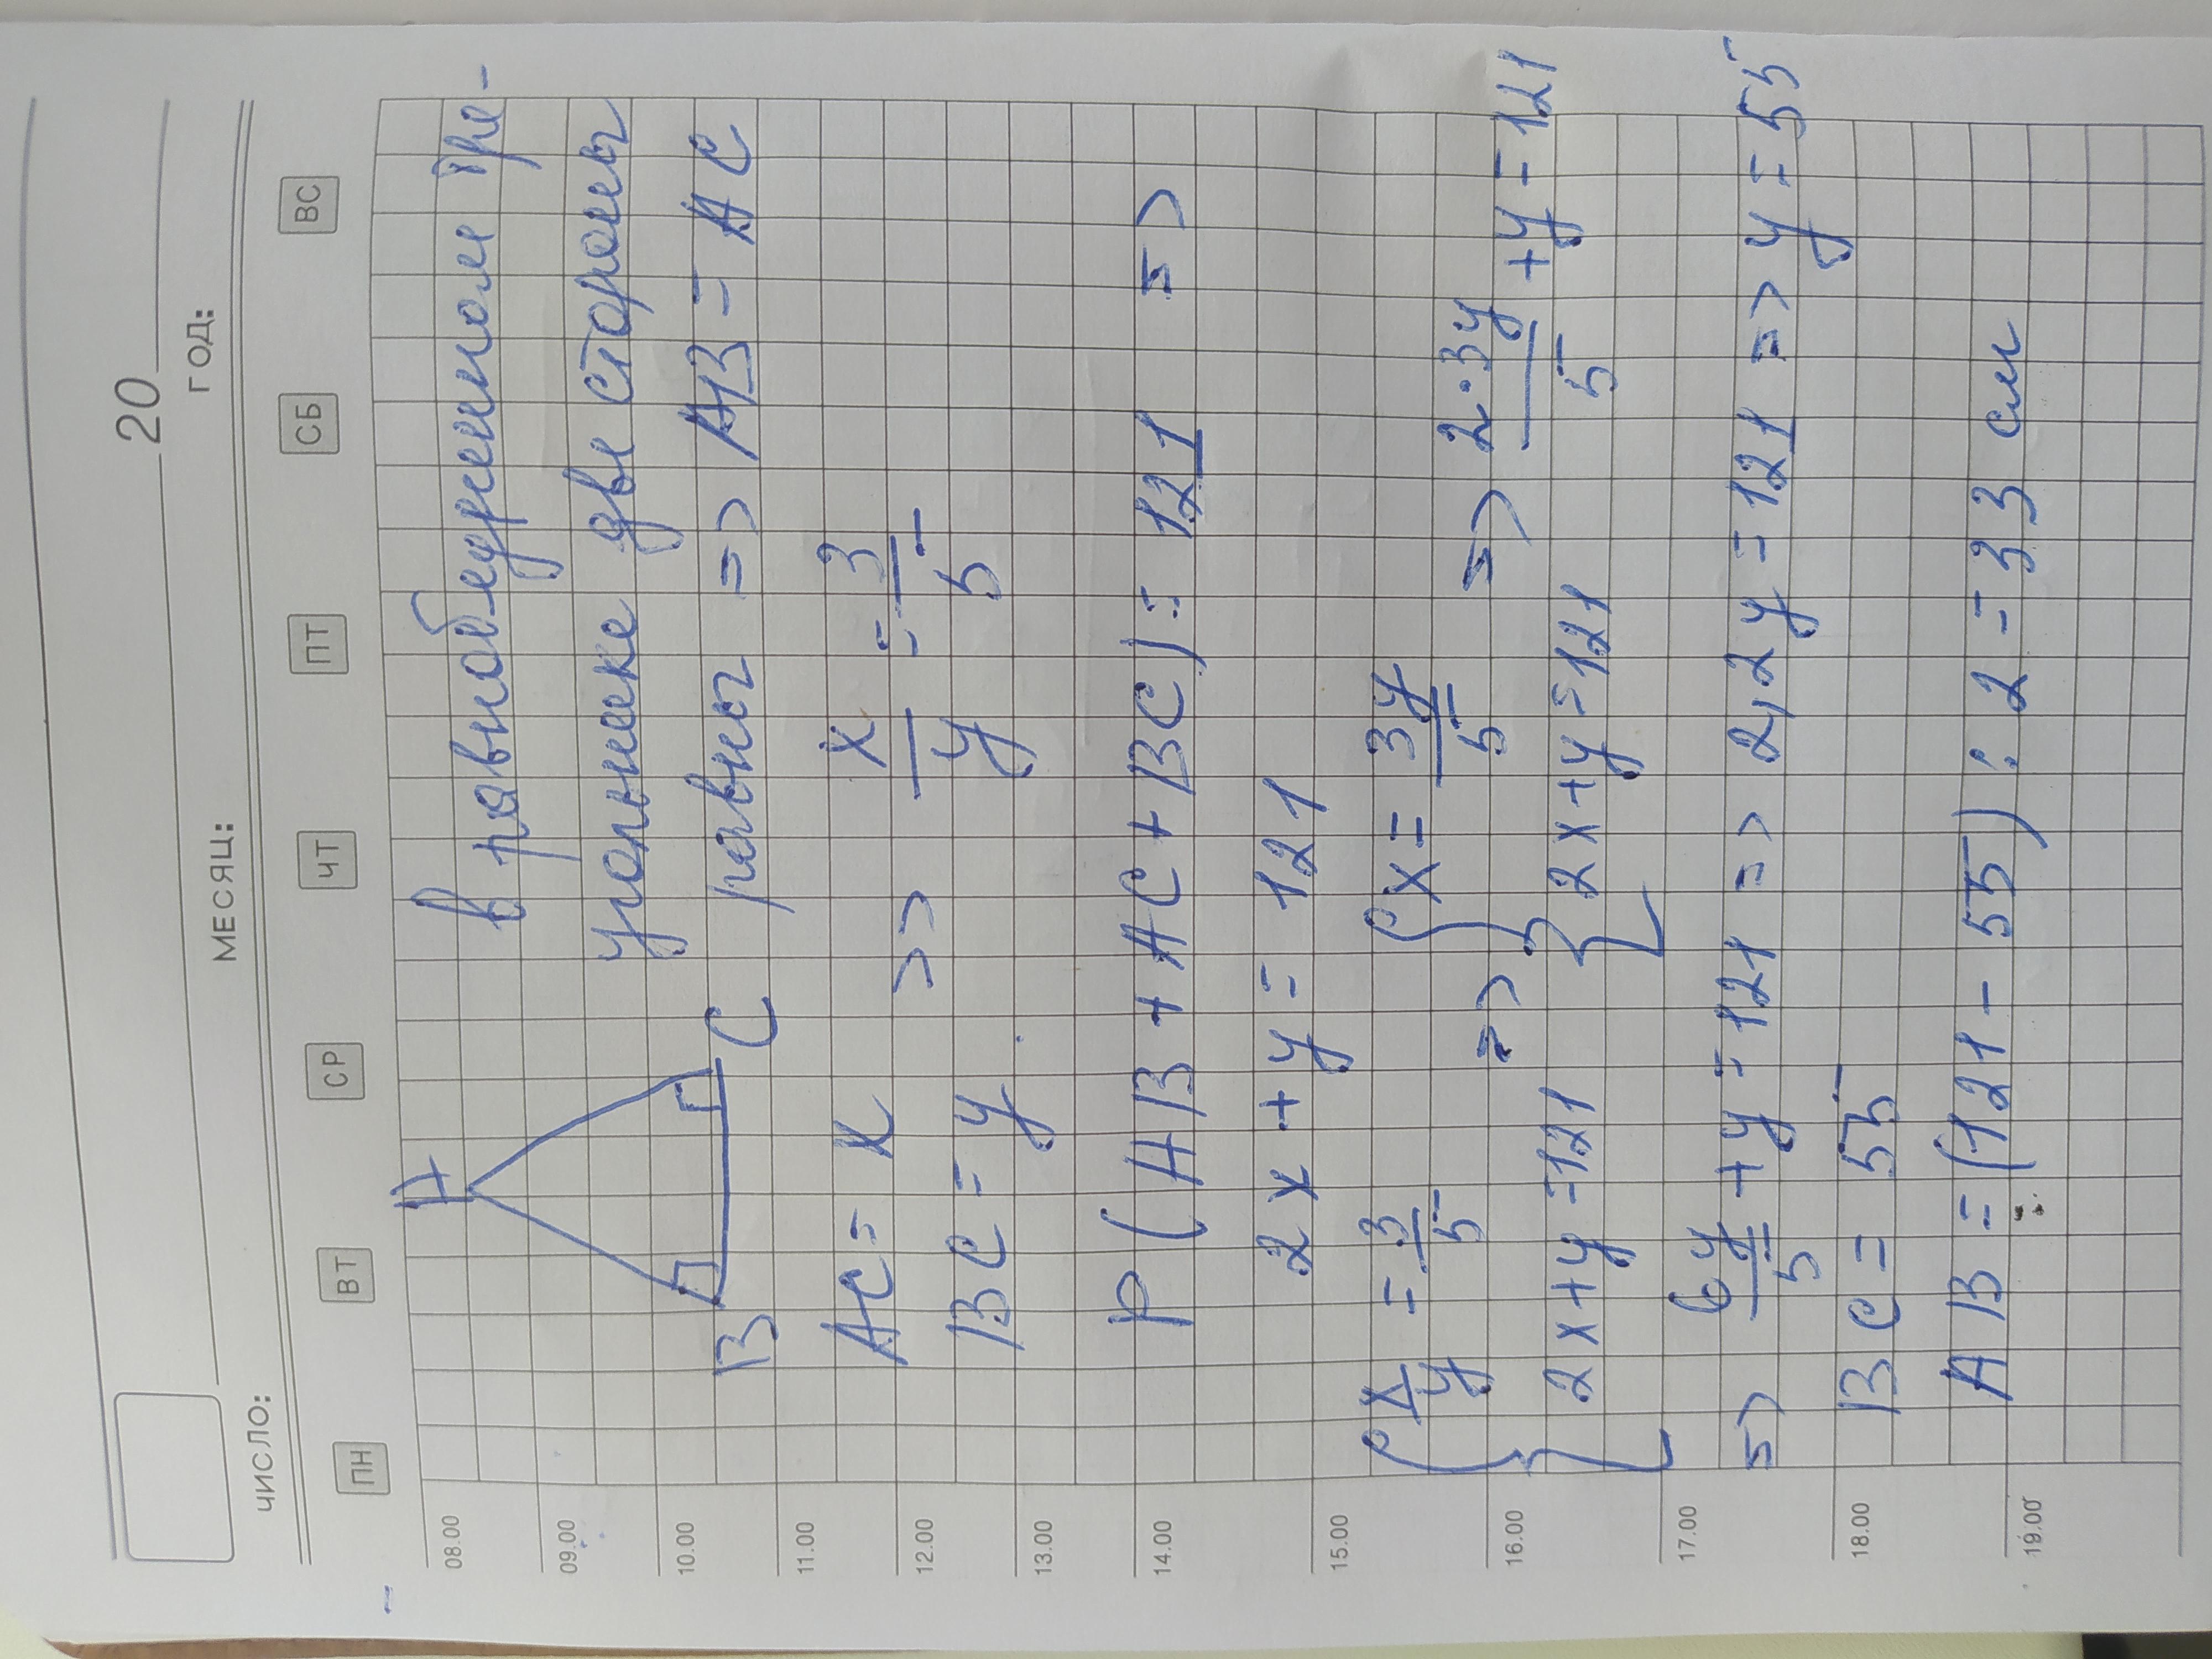 20
ЧИСЛО: МЕСЯЦ: ГОД:
ПН ВТ СР ЧТ ПТ СБ ВС
08.00
09.00
10.00
11.00
12.00
13.00
14.00
15.00
16.00
17.00
18.00
19.00
A
B C
В равнобедренном тре-
угольнике две стороны
равны => AB = AC
AC = x
BC = y
>> x/y = 3/5
P (AB + AC + BC) = 121 =>
2x + y = 121
{ x/y = 3/5 => { x = 3y/5 => 2·3y/5 + y = 121
2x + y = 121 2x + y = 121
=> 6y/5 + y = 121 => 2,2y = 121 => y = 55
BC = 55
AB = (121 - 55) : 2 = 33 см